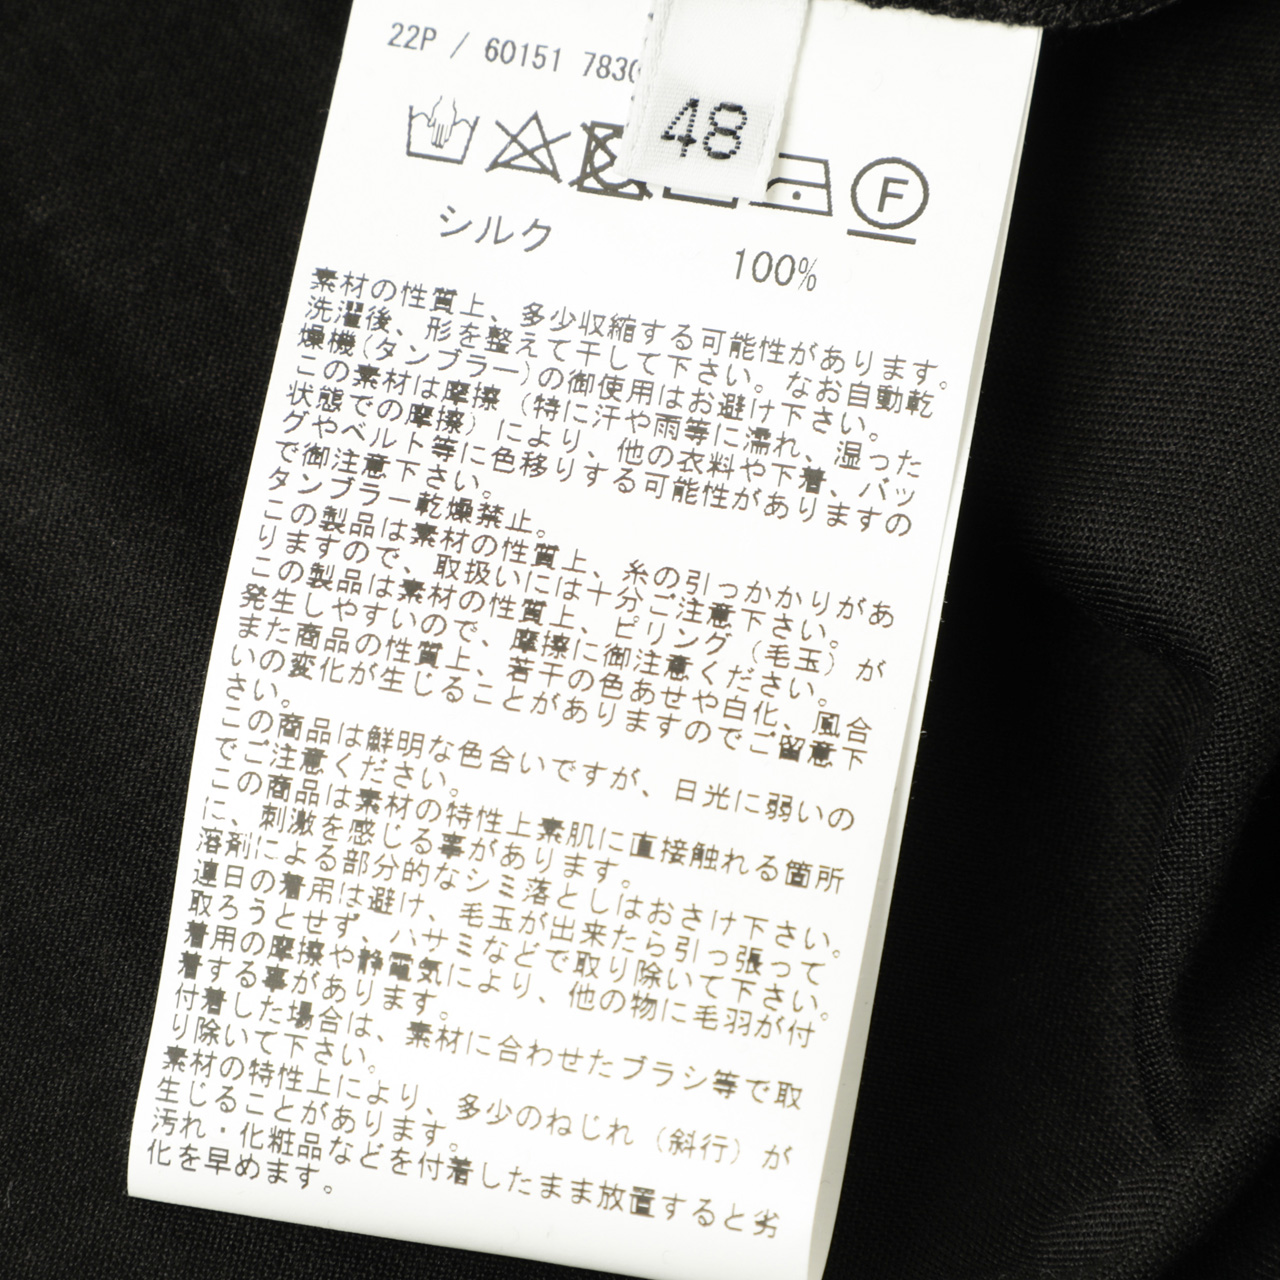 22P / 60151 783
48
F
シルク 100%
素材の性質上、多少収縮する可能性があります。
洗濯後、形を整えて干して下さい。なお自動乾
燥機(タンブラー)の御使用はお避け下さい。
この素材は摩擦（特に汗や雨等に濡れ、湿った
状態での摩擦）により、他の衣料や下着、バッ
グやベルト等に色移りする可能性がありますの
で御注意下さい。
タンブラー乾燥禁止。
この製品は素材の性質上、糸の引っかかりがあ
りますので、取扱いには十分ご注意下さい。
この製品は素材の性質上、ピリング（毛玉）が
発生しやすいので、摩擦に御注意ください。
また商品の性質上、若干の色あせや白化、風合
いの変化が生じることがありますのでご留意下
さい。
この商品は鮮明な色合いですが、日光に弱いの
でご注意ください。
この商品は素材の特性上素肌に直接触れる箇所
に、刺激を感じる事があります。
溶剤による部分的なシミ落としはおさけ下さい。
連日の着用は避け、毛玉が出来たら引っ張って
取ろうとせず、ハサミなどで取り除いて下さい。
着用の摩擦や静電気により、他の物に毛羽が付
着する事があります。
付着した場合は、素材に合わせたブラシ等で取
り除いて下さい。
素材の特性上により、多少のねじれ（斜行）が
生じることがあります。
汚れ・化粧品などを付着したまま放置すると劣
化を早めます。